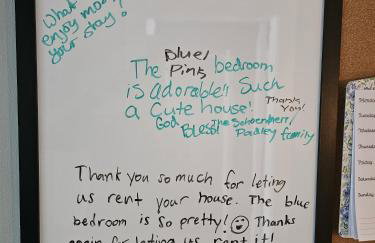 What
enjoy mo
your stay?
Blue/
The Pink bedroom
is adorable!! Such
a cute house! Thank
You!
God
Bless! The Schoenherr/
Padley family
Thank you so much for leting
us rent your house. The blue
bedroom is so pretty! Thanks
again for leting us rent it!